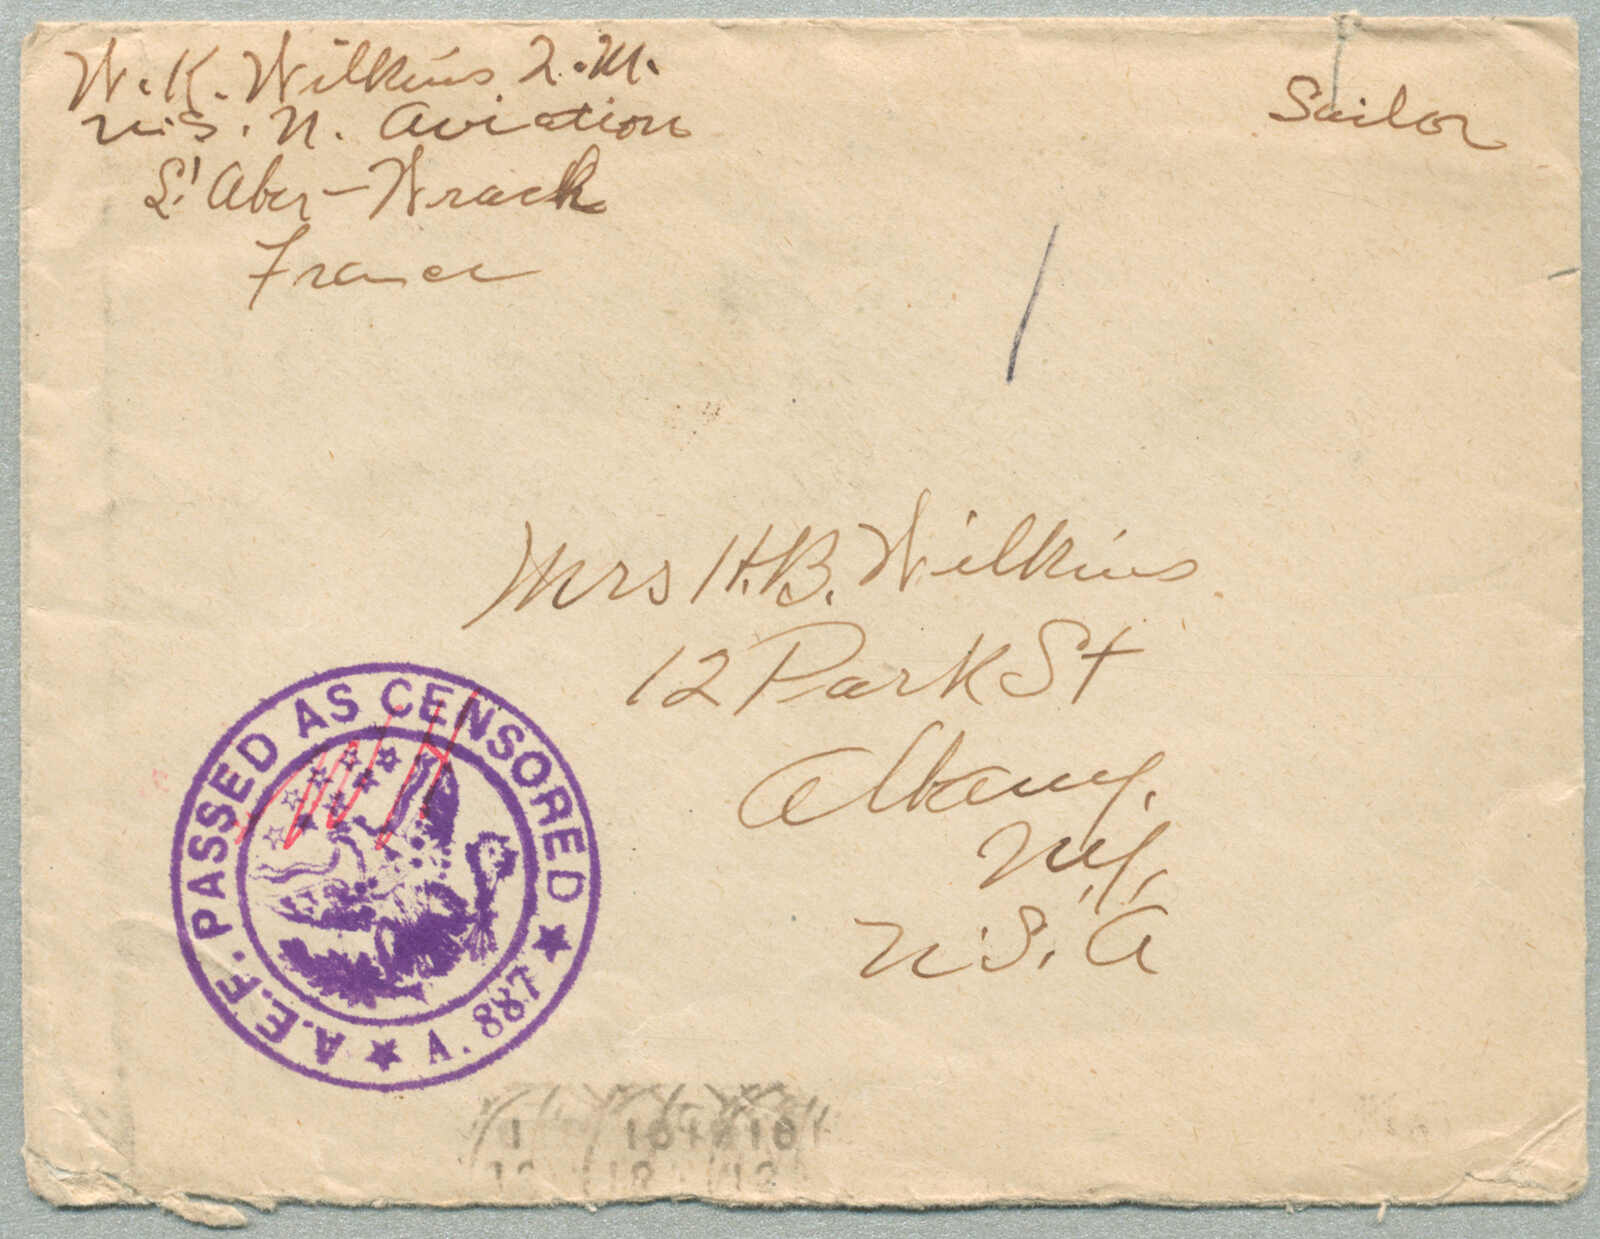 W. K. Wilkins Q.M.
U.S. N. Aviation
L'Aber-Wrach
France
Sailor
Mrs H.B. Wilkins
12 Park St
Albany,
N.Y.,
U.S.A
A.E.F. PASSED AS CENSORED
A. 887